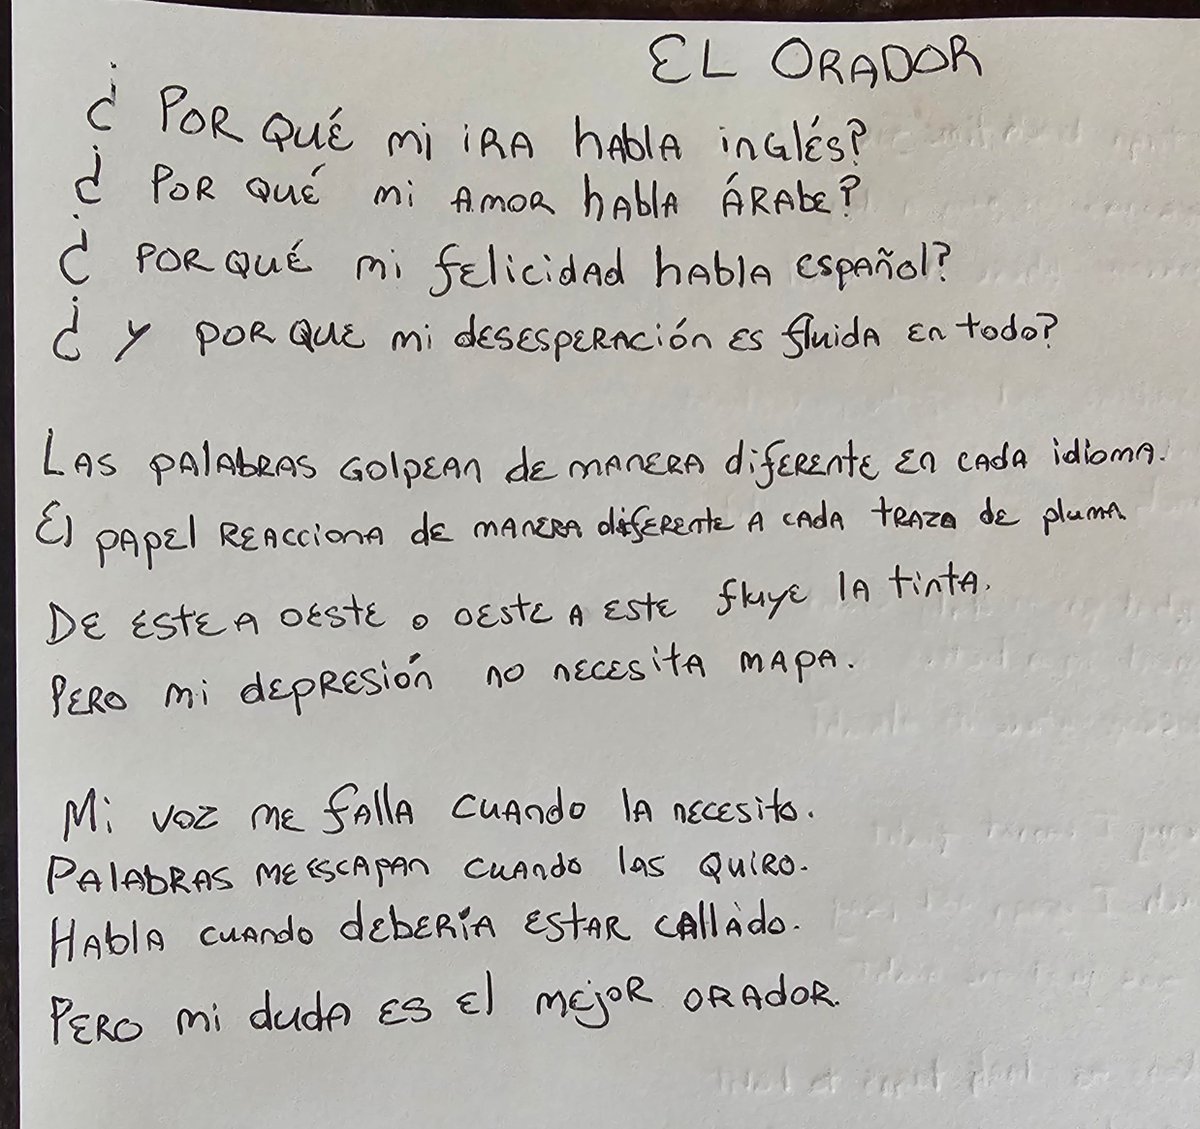 EL ORADOR
¿ POR QUÉ mi iRA habla inglés?
¿ POR QUÉ mi AMOR habla ÁRAbE?
¿ POR QUÉ mi felicidad habla español?
¿ y POR QUE mi DESESPERACIÓN ES fluida En todo?
LAS palabras Golpean de manera diferente En cada idioma.
El papel REAcciona de manera diferente A cada traza de pluma
DE ESTE A OESTE o OESTE A ESTE fluye la tinta.
PERO mi depresión no necesita mapa.
Mi voz me falla cuando la necesito.
Palabras me escapan cuando las quiro.
Habla cuando debería estar callado.
Pero mi duda es el mejor orador.